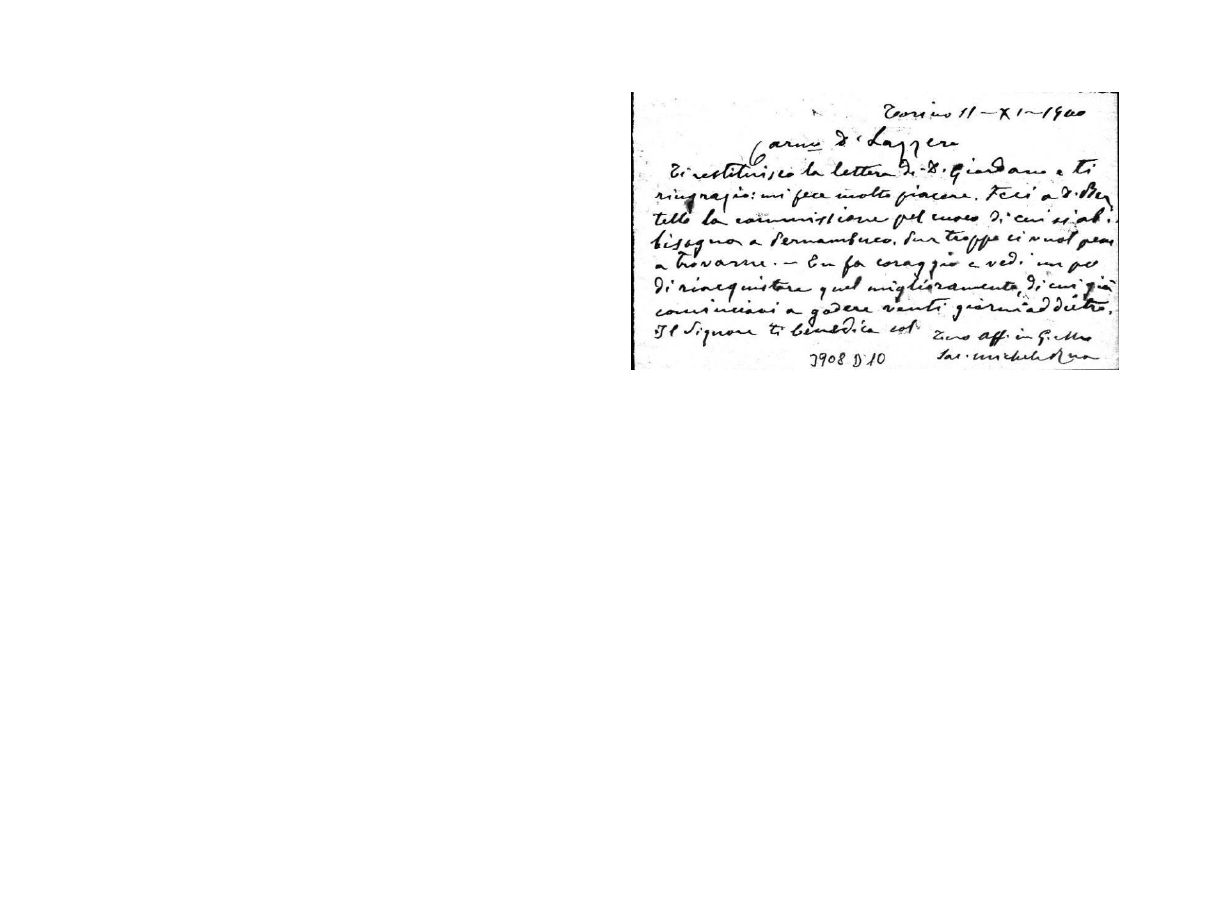 Torino 11-XI-1900
Carmo D. Lazzero
Ti restituisco la lettera di D. Giordano e ti
ringrazio: mi fece molto piacere. Feci a D. Ber
tello la commissione pel cuoco di cui si ab.
bisogna a Pernambuco. Pur troppo ci vuol pena
a trovarne. - Tu fa coraggio e vedi un po
di riacquistare quel miglioramento, di cui già
cominciavi a godere venti giorni addietro.
Il Signore ti benedica col
Tuo aff. in G. e M.
Sac. Michele Rua
3908 D 10